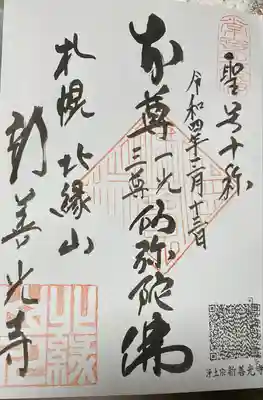 聖号十称
令和四年三月十三日
本尊 一光三尊 阿弥陀佛
札幌 北縁山
新善光寺
北縁山
浄土宗 新善光寺